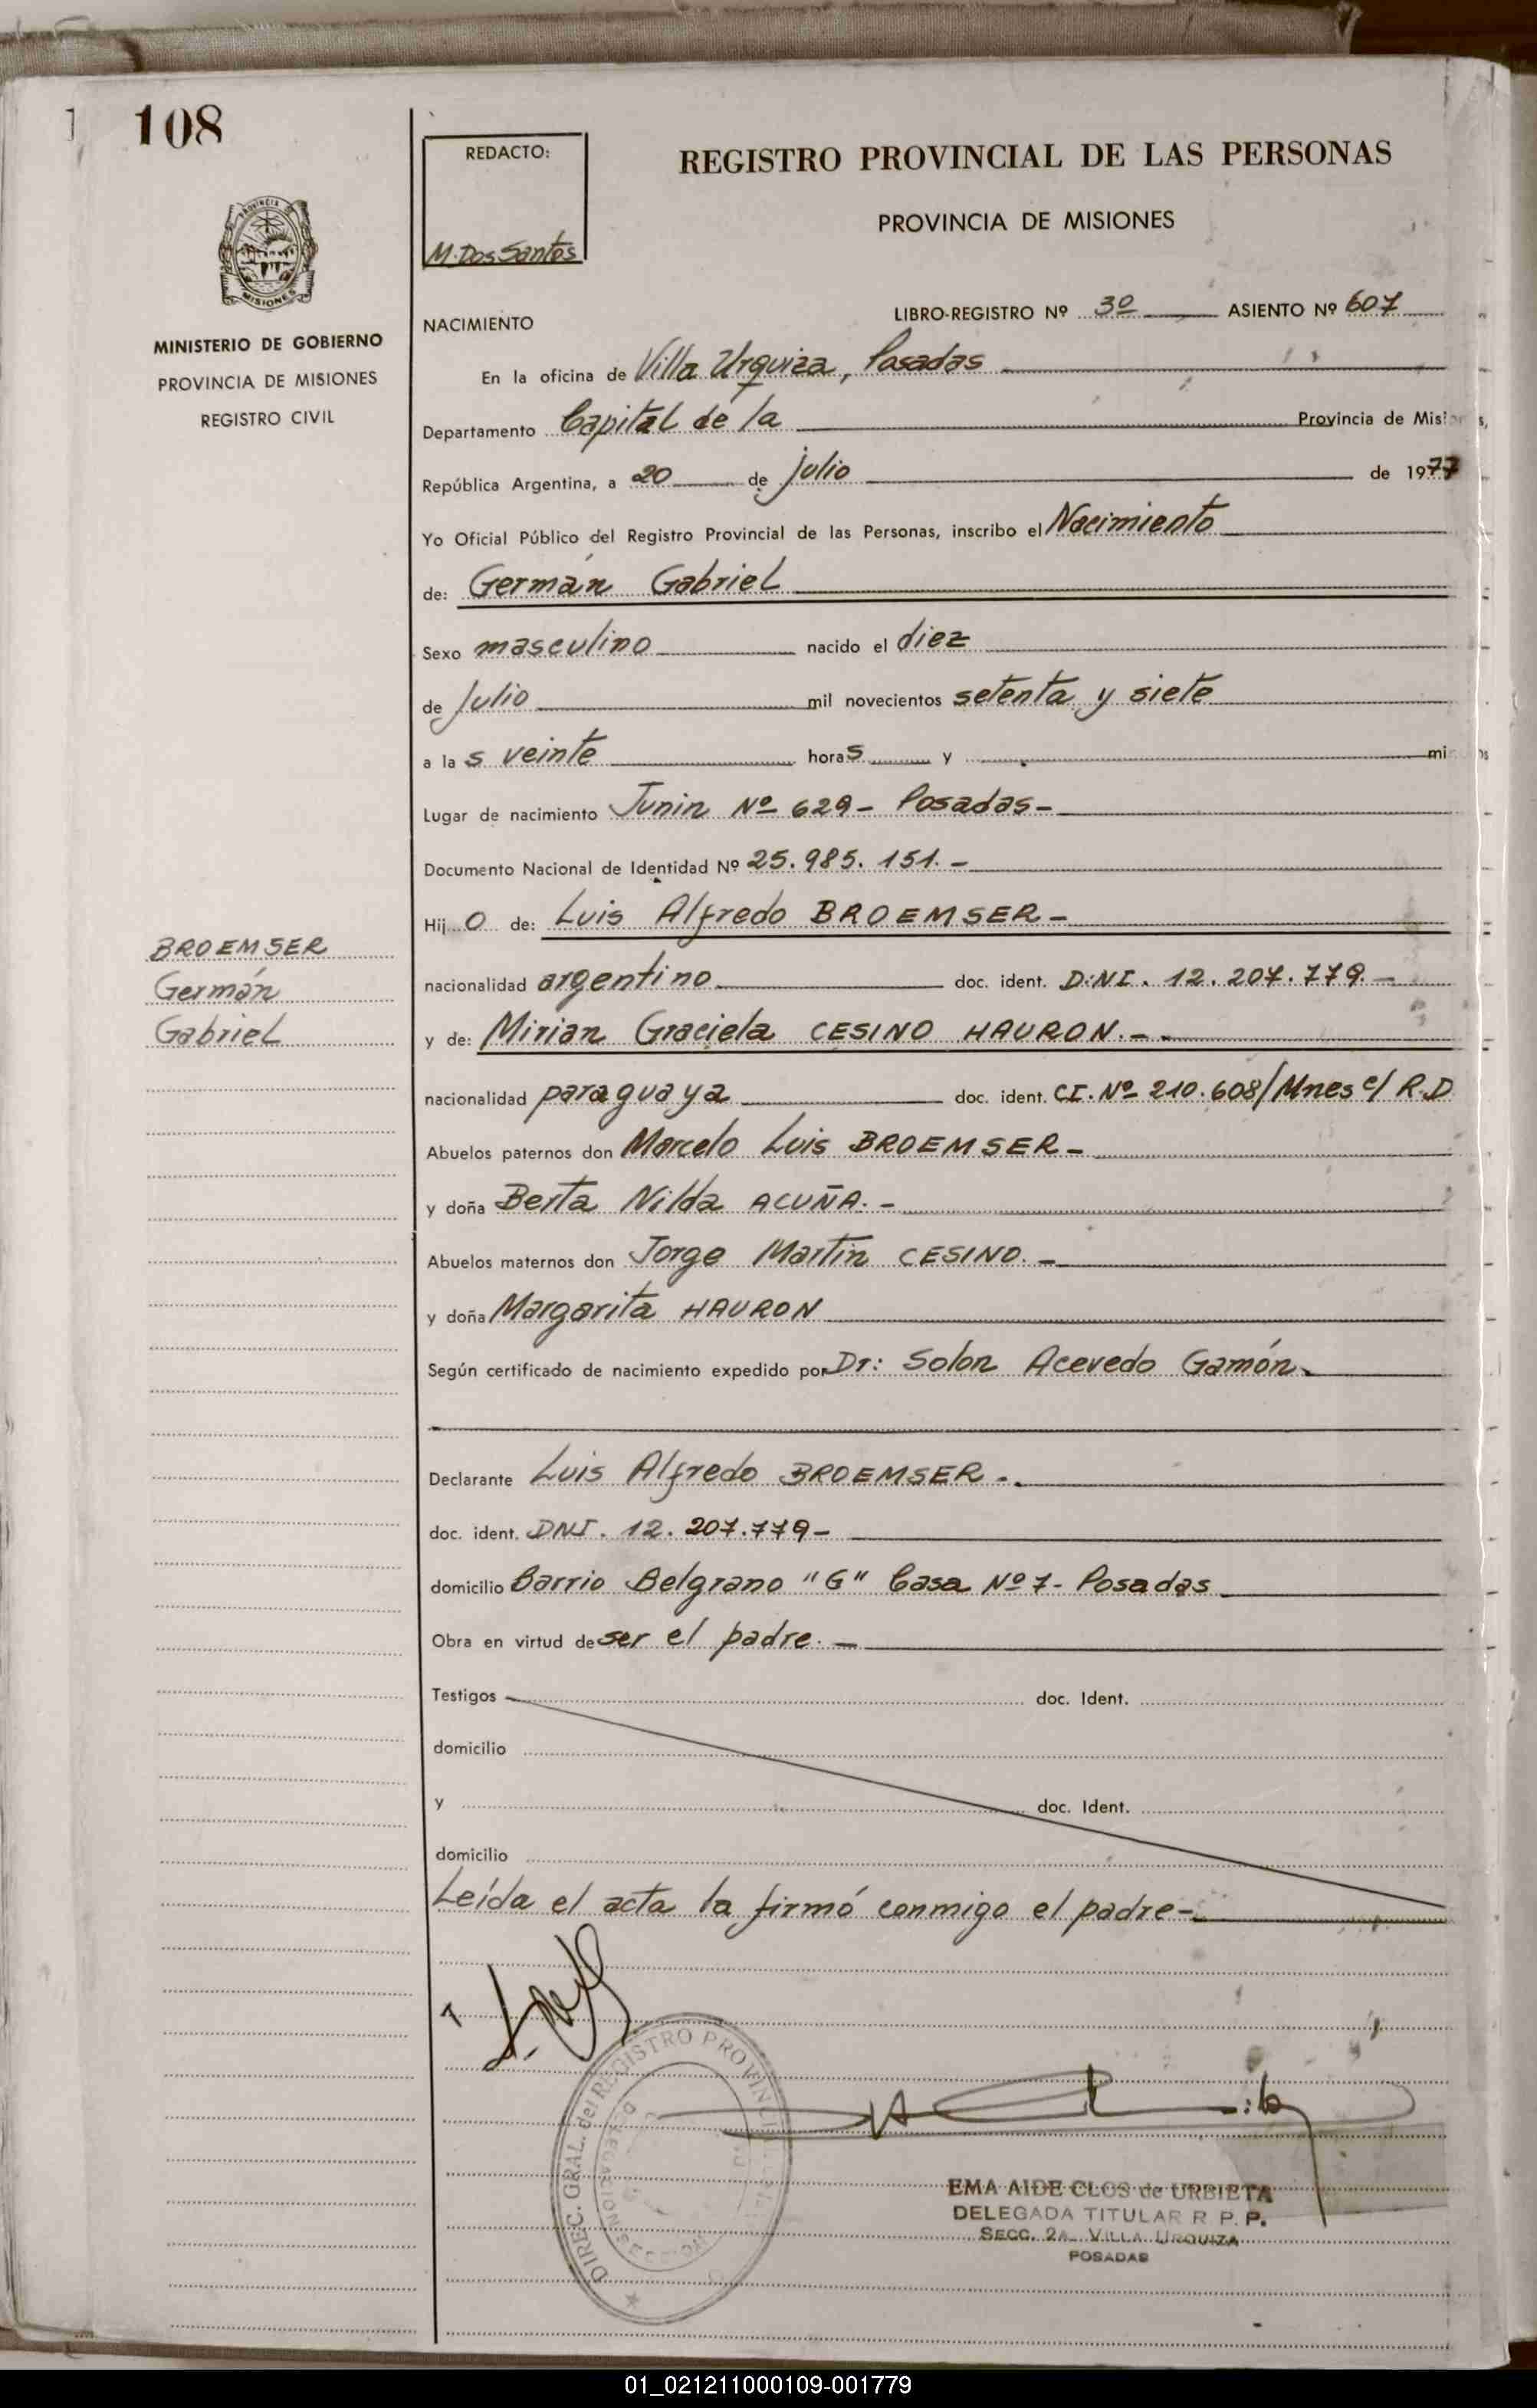 108
REDACTO:
M. Dos Santos
REGISTRO PROVINCIAL DE LAS PERSONAS
PROVINCIA DE MISIONES
PROVINCIA
MISIONES
MINISTERIO DE GOBIERNO
PROVINCIA DE MISIONES
REGISTRO CIVIL
LIBRO-REGISTRO Nº 3º ASIENTO Nº 607
NACIMIENTO
En la oficina de Villa Urquiza, Posadas
Departamento Capital de la Provincia de Mis
República Argentina, a 20 de julio de 1977
Yo Oficial Público del Registro Provincial de las Personas, inscribo el Nacimiento
de: Germán Gabriel
Sexo masculino nacido el diez
de Julio mil novecientos setenta y siete
a las veinte horas y mi
Lugar de nacimiento Junin Nº 629 - Posadas -
Documento Nacional de Identidad Nº 25.985.151. -
Hijo de: Luis Alfredo BROEMSER -
BROEMSER
Germán
Gabriel
nacionalidad argentino doc. ident. D.N.I. 12.207.779. -
y de: Mirian Graciela CESINO HAURON. -
nacionalidad paraguaya doc. ident. C.I. Nº 210.608/Mnes c/ R.D
Abuelos paternos don Marcelo Luis BROEMSER -
y doña Berta Nilda ACUÑA. -
Abuelos maternos don Jorge Martin CESINO. -
y doña Margarita HAURON
Según certificado de nacimiento expedido por Dr: Solon Acevedo Gamón
Declarante Luis Alfredo BROEMSER -.
doc. ident. DNI. 12.207.779 -
domicilio Barrio Belgrano "G" Casa Nº 7 - Posadas
Obra en virtud de ser el padre. -
Testigos doc. Ident.
domicilio
y doc. Ident.
domicilio
Leída el acta la firmó conmigo el padre -
DIREC. GRAL. del REGISTRO PROVINCIAL
EMA AIDE CLOS de URBIETA
DELEGADA TITULAR R P. P.
SECC. 2A VILLA URQUIZA
POSADAS
01_021211000109-001779